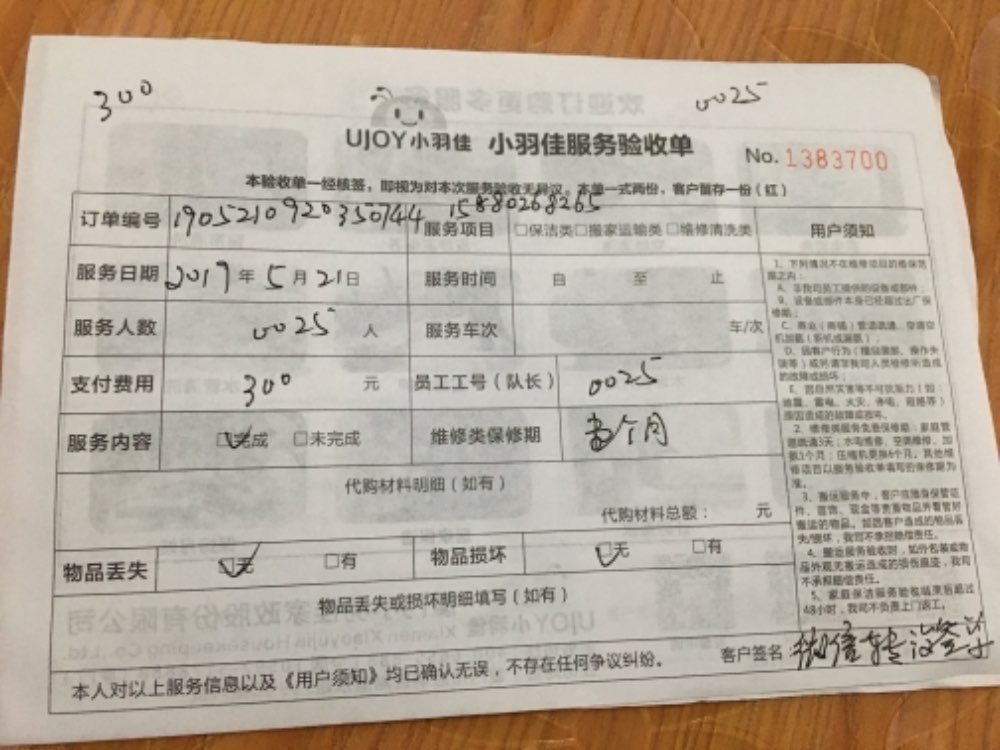 300
0025
UJOY小羽佳 小羽佳服务验收单
No. 1383700
本验收单一经核签，即视为对本次服务验收无异议。本单一式两份，客户留存一份（红）
订单编号 1905210920350744 15880268265
服务项目 □保洁类□搬家运输类□维修清洗类
服务日期 2017年5月21日 服务时间 自 至 止
服务人数 0025 人 服务车次 车/次
支付费用 300 元 员工工号（队长） 0025
服务内容 □完成 □未完成 维修类保修期 个月
代购材料明细（如有）
代购材料总额： 元
物品丢失 □无 □有 物品损坏 □无 □有
物品丢失或损坏明细填写（如有）
客户签名：微信转 签字
本人对以上服务信息以及《用户须知》均已确认无误，不存在任何争议纠纷。
用户须知
1、下列情况不在维修项目的维保范
围之内：
A、非我司员工提供的设备或部件；
B、设备或部件本身已经超过出厂保
修期；
C、商业（商铺）管道疏通、空调空
机加氨（拆机或漏氨）；
D、因客户行为（擅自调整、操作失
误等）或另请非我司人员维修所造成
的故障或损坏；
E、因自然灾害等不可抗拒力（如：
地震、雷电、火灾、停电、短路等）
原因造成的故障或损坏。
2、维修类服务免费保修期：家庭管
道疏通3天；水电维修、空调维修、加
氨1个月；压缩机更换6个月。其他维
修项目以服务验收单填写的保修期为
准。
3、搬运服务中，客户应随身保管证
件、首饰、现金等贵重物品并看管好
搬运的物品。如因客户造成的物品丢
失/损坏，我司不承担赔偿责任。
4、搬运服务验收时，如外包装或物
品外观无搬运造成的损伤痕迹，我司
不承担赔偿责任。
5、家庭保洁服务验收结束后超过
48小时，我司不负责上门返工。